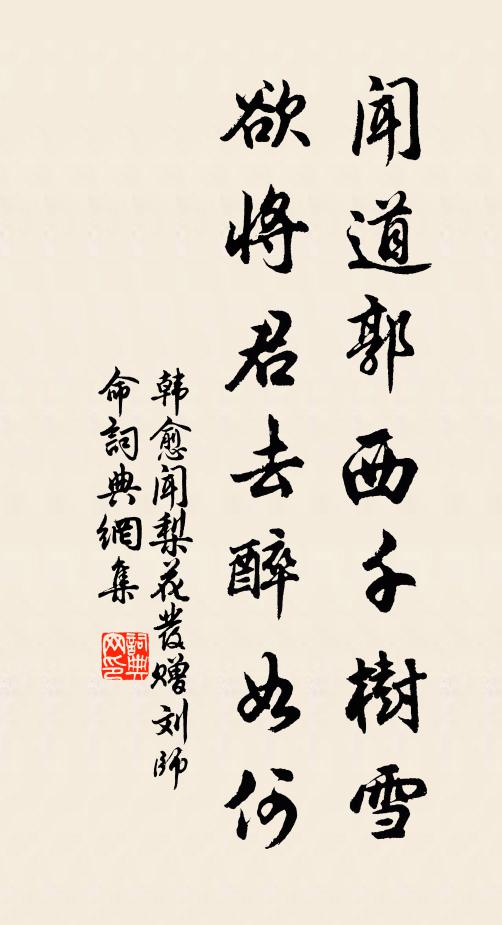 闻道郭西千樹雪
欲将君去醉如何
韩愈闻梨花發赠刘师
命詞典網集
詞典网印